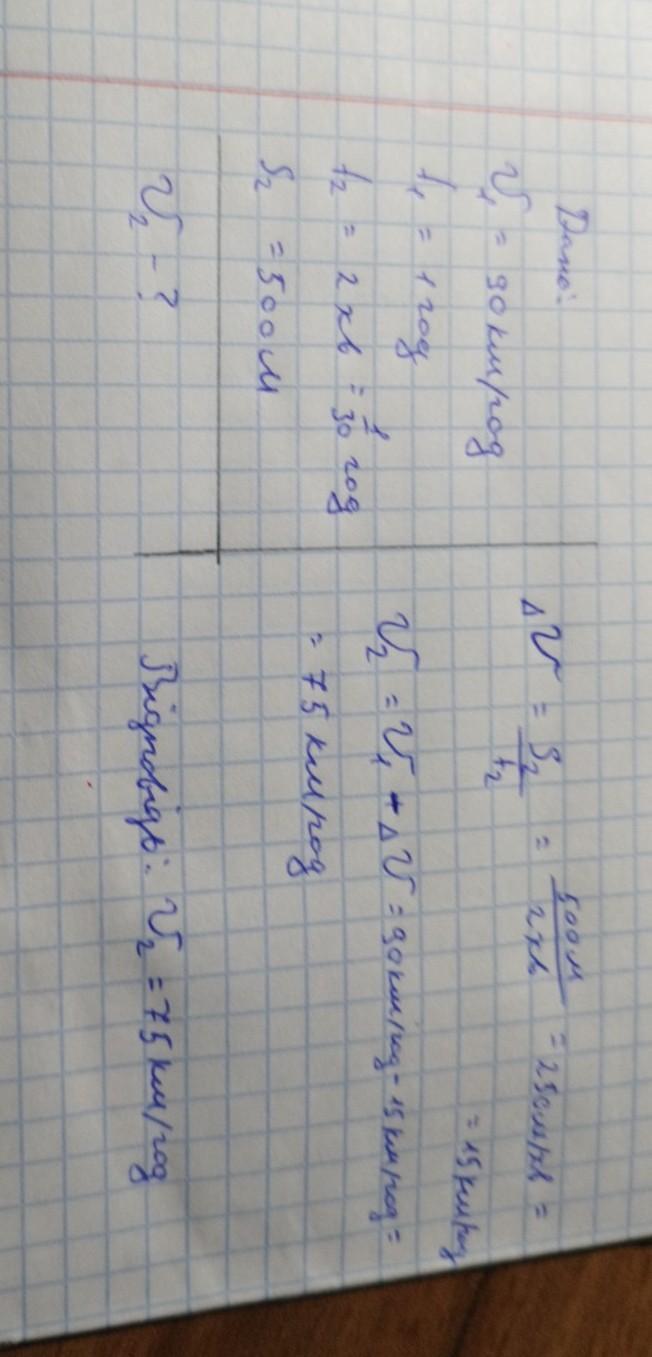 Дано:
V₁ = 90 км/год
t₁ = 1 год
t₂ = 2 хв = 1/30 год
S₂ = 500 м
V₂ - ?
ΔV = S₂/t₂ = 500м/2хв = 250 м/хв =
= 15 км/год
V₂ = V₁ - ΔV = 90 км/год - 15 км/год =
= 75 км/год
Відповідь: V₂ = 75 км/год